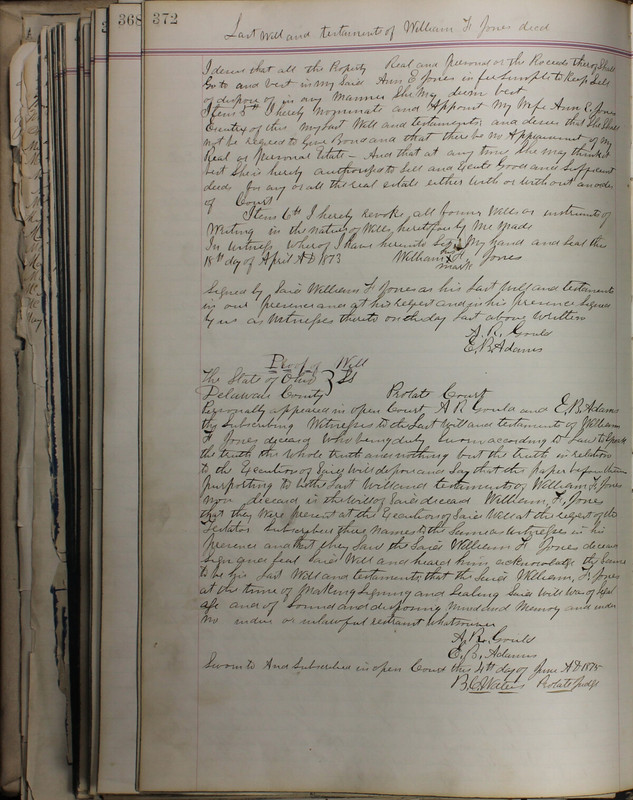 368 372
Last Will and testament of William H Jones decd
I desire that all the Property Real and personal or the Proceeds thereof Shall
Go to and vest in my Said Ann E Jones in fee Simple to Keep Sell
or dispose of in any Manner She May deem best
Item 5th I hereby nominate and Appoint My Wife Ann E Jones
Executrix of this my Last Will and testament and desire that She Shall
not be Required to Give Bond and that there be no Appraisement of My
Real or Personal Estate – And that at any time She may think it
best She is hereby authorized to Sell and Execute Good and Sufficient
deeds for any or all the real estate either with or without an order
of Court
Item 6th I hereby revoke all former Wills or instruments of
Writing in the nature of Wills heretofore by Me Made
In Witness Whereof I have hereunto Set My hand and Seal this
18th day of April AD 1873 William H his X mark Jones
Signed by Said William H Jones as his Last Will and testament
in our presence and at his request and in his presence Signed
by us as Witnesses thereto on the day last above Written
A. R. Gould
E. B. Adams
Proof of Will
The State of Ohio } SS
Delaware County Probate Court
Personally appeared in open Court A R Gould and E. B. Adams
the Subscribing Witnesses to the Last Will and testament of William
H Jones deceased Who being duly Sworn according to Law to Speak
the truth the Whole truth and nothing but the truth in relation
to the Execution of Said Will depose and Say that the paper before them
purporting to be the Last Will and testament of William H. Jones
now deceased is the Will of Said deceased William H. Jones
that they Were present at the Execution of Said Will at the request of the
Testator Subscribed their Names to the Same as Witnesses in his
presence and that they Saw the Said William H Jones deceased
Sign and Seal Said Will and heard him acknowledge the Same
to be his Last Will and testament, that the Said William, H Jones
at the time of Making Signing and Sealing Said Will Was of legal
age and of Sound and disposing Mind and Memory and under
no undue or unlawful restraint Whatsoever
A. R. Gould
E. B. Adams
Sworn to And Subscribed in open Court this 4th day of June AD 1875
B. C. Waters Probate Judge